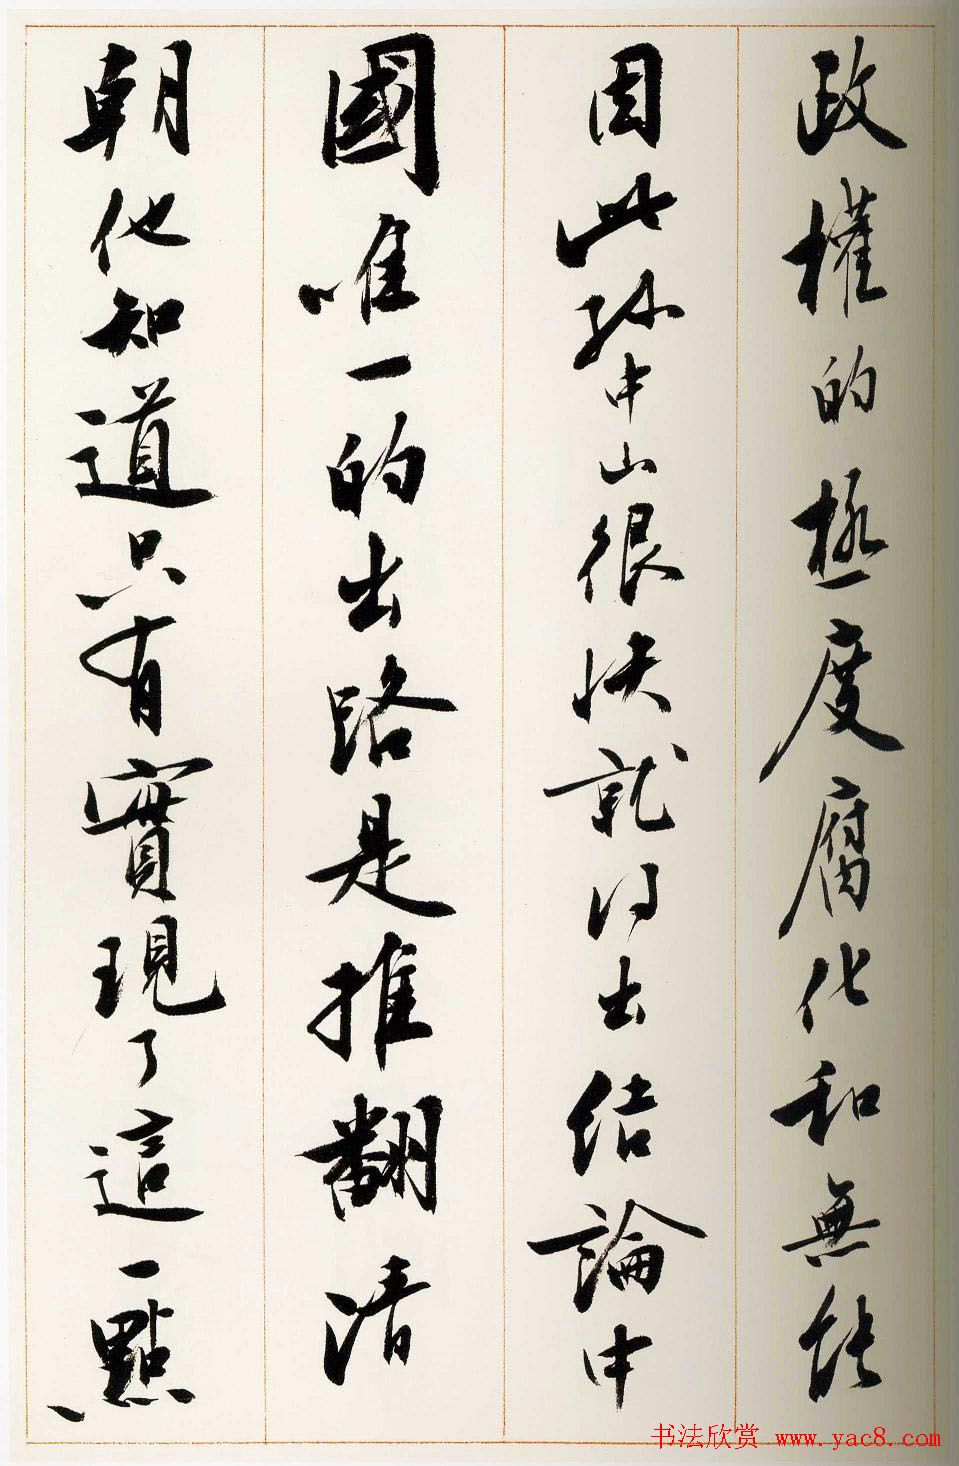 政權的極度腐化和無能
因此孫中山很快就得出結論中
國唯一的出路是推翻清
朝他知道只有實現了這一點
书法欣赏 www.yac8.com